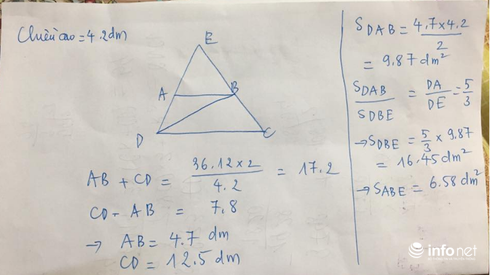 Chiều cao = 4.2dm
E
A
B
D
C
AB + CD = 36.12 x 2 / 4.2 = 17.2
CD - AB = 7.8
→ AB = 4.7 dm
CD = 12.5 dm
S DAB = 4.7 x 4.2 / 2
= 9.87 dm²
S DAB / S DBE = DA / DE = 5 / 3
→ S DBE = 5 / 3 x 9.87
= 16.45 dm²
→ S ABE = 6.58 dm²
infonet